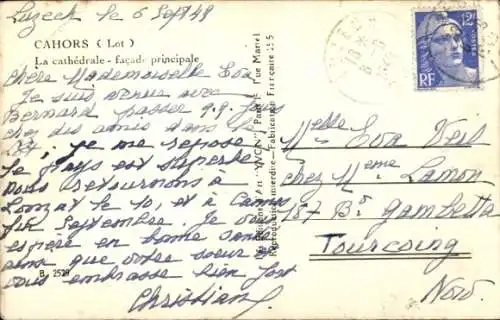 Luzech le 6 Sept 49
CAHORS (Lot)
La cathédrale - façade principale
Chère Mademoiselle Eva
Je suis venue avec
Bernard passer q.q. jours
chez des amis dans le
Lot, je me repose
le pays est superbe
nous retournons à
le 10, et à
Septembre. Je vous
espère en bonne santé
ainsi que votre soeur
vous embrasse bien fort
Christiane
B. 2529
Les Editions d'Art "YVON", Paris, Rue Martel
Reproduction interdite - Fabrication Française
12F
RF
Melle Eva
chez Mme Lamon
187 Bd Gambetta
Tourcoing
Nord.